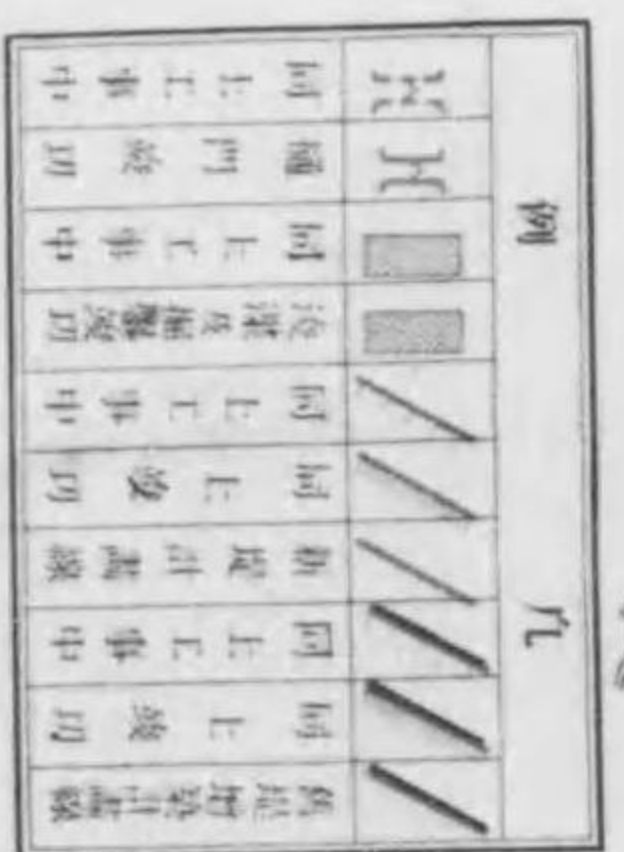 凡例
堤増築計畫線
同上竣功
同上工事中
新堤計畫線
同上竣功
同上工事中
浚渫及掘鑿竣功
同上工事中
樋門竣功
同上工事中